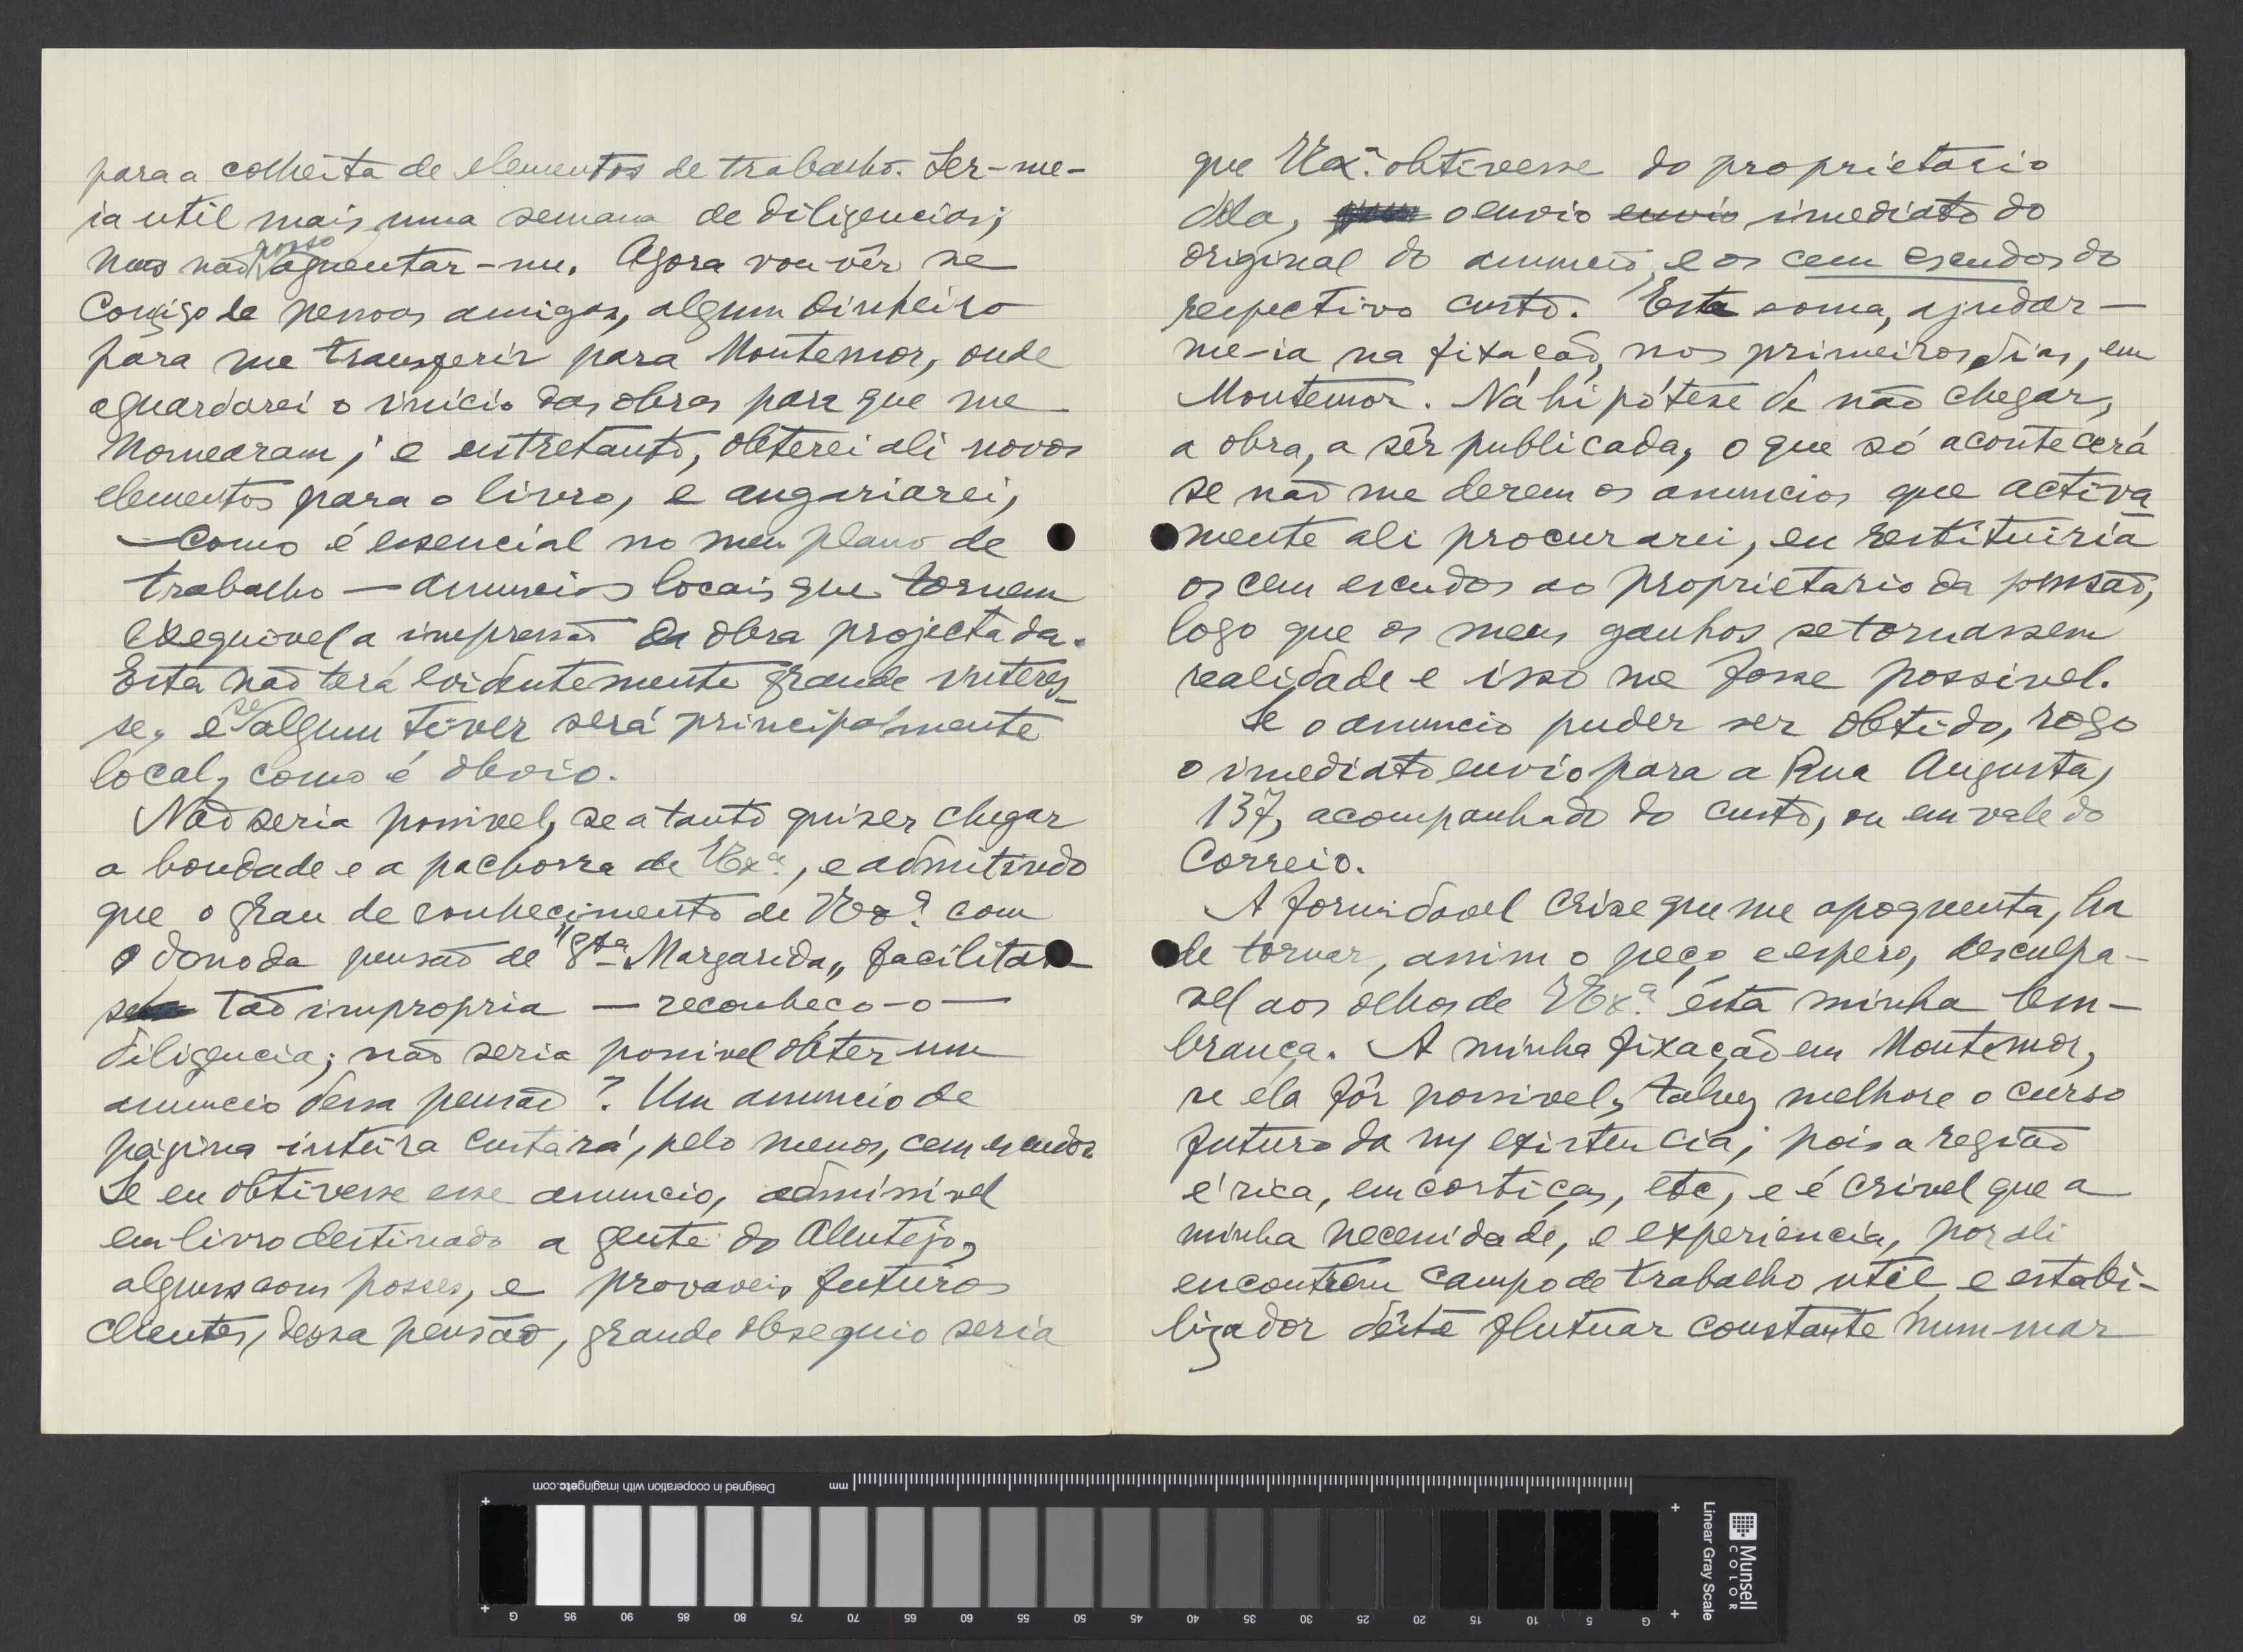 para a colheita de elementos de trabalho. Ser-me-
ia util mais uma semana de diligencias;
mas não posso aguentar-me. Agora vou vêr se
consigo de pessoas amigas, algum dinheiro
para me transferir para Montemor, onde
aguardarei o inicio das obras para que me
nomearam; e entretanto, obterei ali novos
elementos para o livro, e angariarei,
—como é essencial no meu plano de
trabalho — anuncios locais que tornem
exequivel a impressão da obra projectada.
Esta não terá evidentemente grande interes-
se, e se algum tiver será principalmente
local, como é obvio.
Não seria possivel, se a tanto quiser chegar
a bondade e a pachorra de VExª., e admitindo
que o grau de conhecimento de VExª. com
o dono da pensão de "Stª Margarida„ facilita
tão impropria — reconheço-o —
diligencia; não seria possivel obter um
anuncio dessa pensão? Um anuncio de
página inteira custará, pelo menos, cem escudos.
Se eu obtivesse esse anuncio, admissivel
em livro destinado a gente do Alentejo,
alguns com posses, e provaveis futuros
clientes, dessa pensão, grande obsequio seria
que VExª. obtivesse do proprietario
dela, o envio envio imediato do
original do anuncio, e os cem escudos do
respectivo custo. Esta soma, ajudar-
me-ia na fixação, nos primeiros dias, em
Montemor. Na hipótese de não chegar,
a obra, a sêr publicada, o que só acontecerá
se não me derem os anuncios que activa
mente ali procurarei, eu restituiria
os cem escudos ao proprietario da pensão,
logo que os meus ganhos se tornassem
realidade e isso me fosse possivel.
Se o anuncio puder ser obtido, rogo
o imediato envio para a Rua Augusta,
137, acompanhado do custo, ou em vale do
Correio.
A formidavel crise que me apoquenta, ha
de tornar, assim o peço e espero, desculpa-
vel aos olhos de VExª. esta minha lem-
brança. A minha fixação em Montemor,
se ela fôr possivel, talvez melhore o curso
futuro da mª existencia; pois a região
é rica, em cortiças, etc, e é crivel que a
minha necessidade, e experiencia, por ali
encontrem campo de trabalho util e estabi-
lizador dêste flutuar constante num mar
Designed in cooperation with imagingetc.com
mm
G 95 90 85 80 75 70 65 60 55 50 45 40 35 30 25 20 15 10 5 G
Linear Gray Scale
Munsell
COLOR